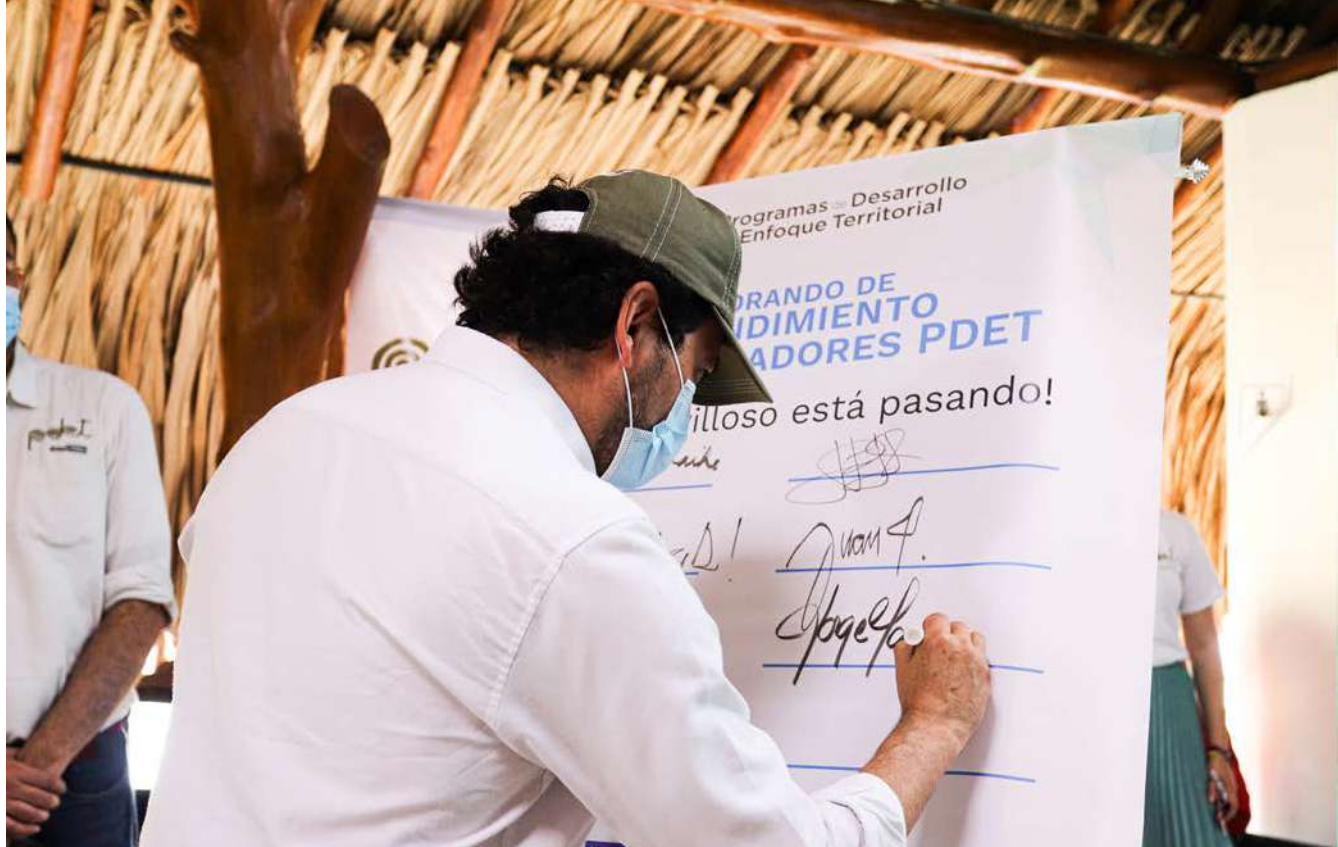 Programas de Desarrollo
Enfoque Territorial
ORANDO DE
NDIMIENTO
ADORES PDET
illoso está pasando!
Juan P.
pdet